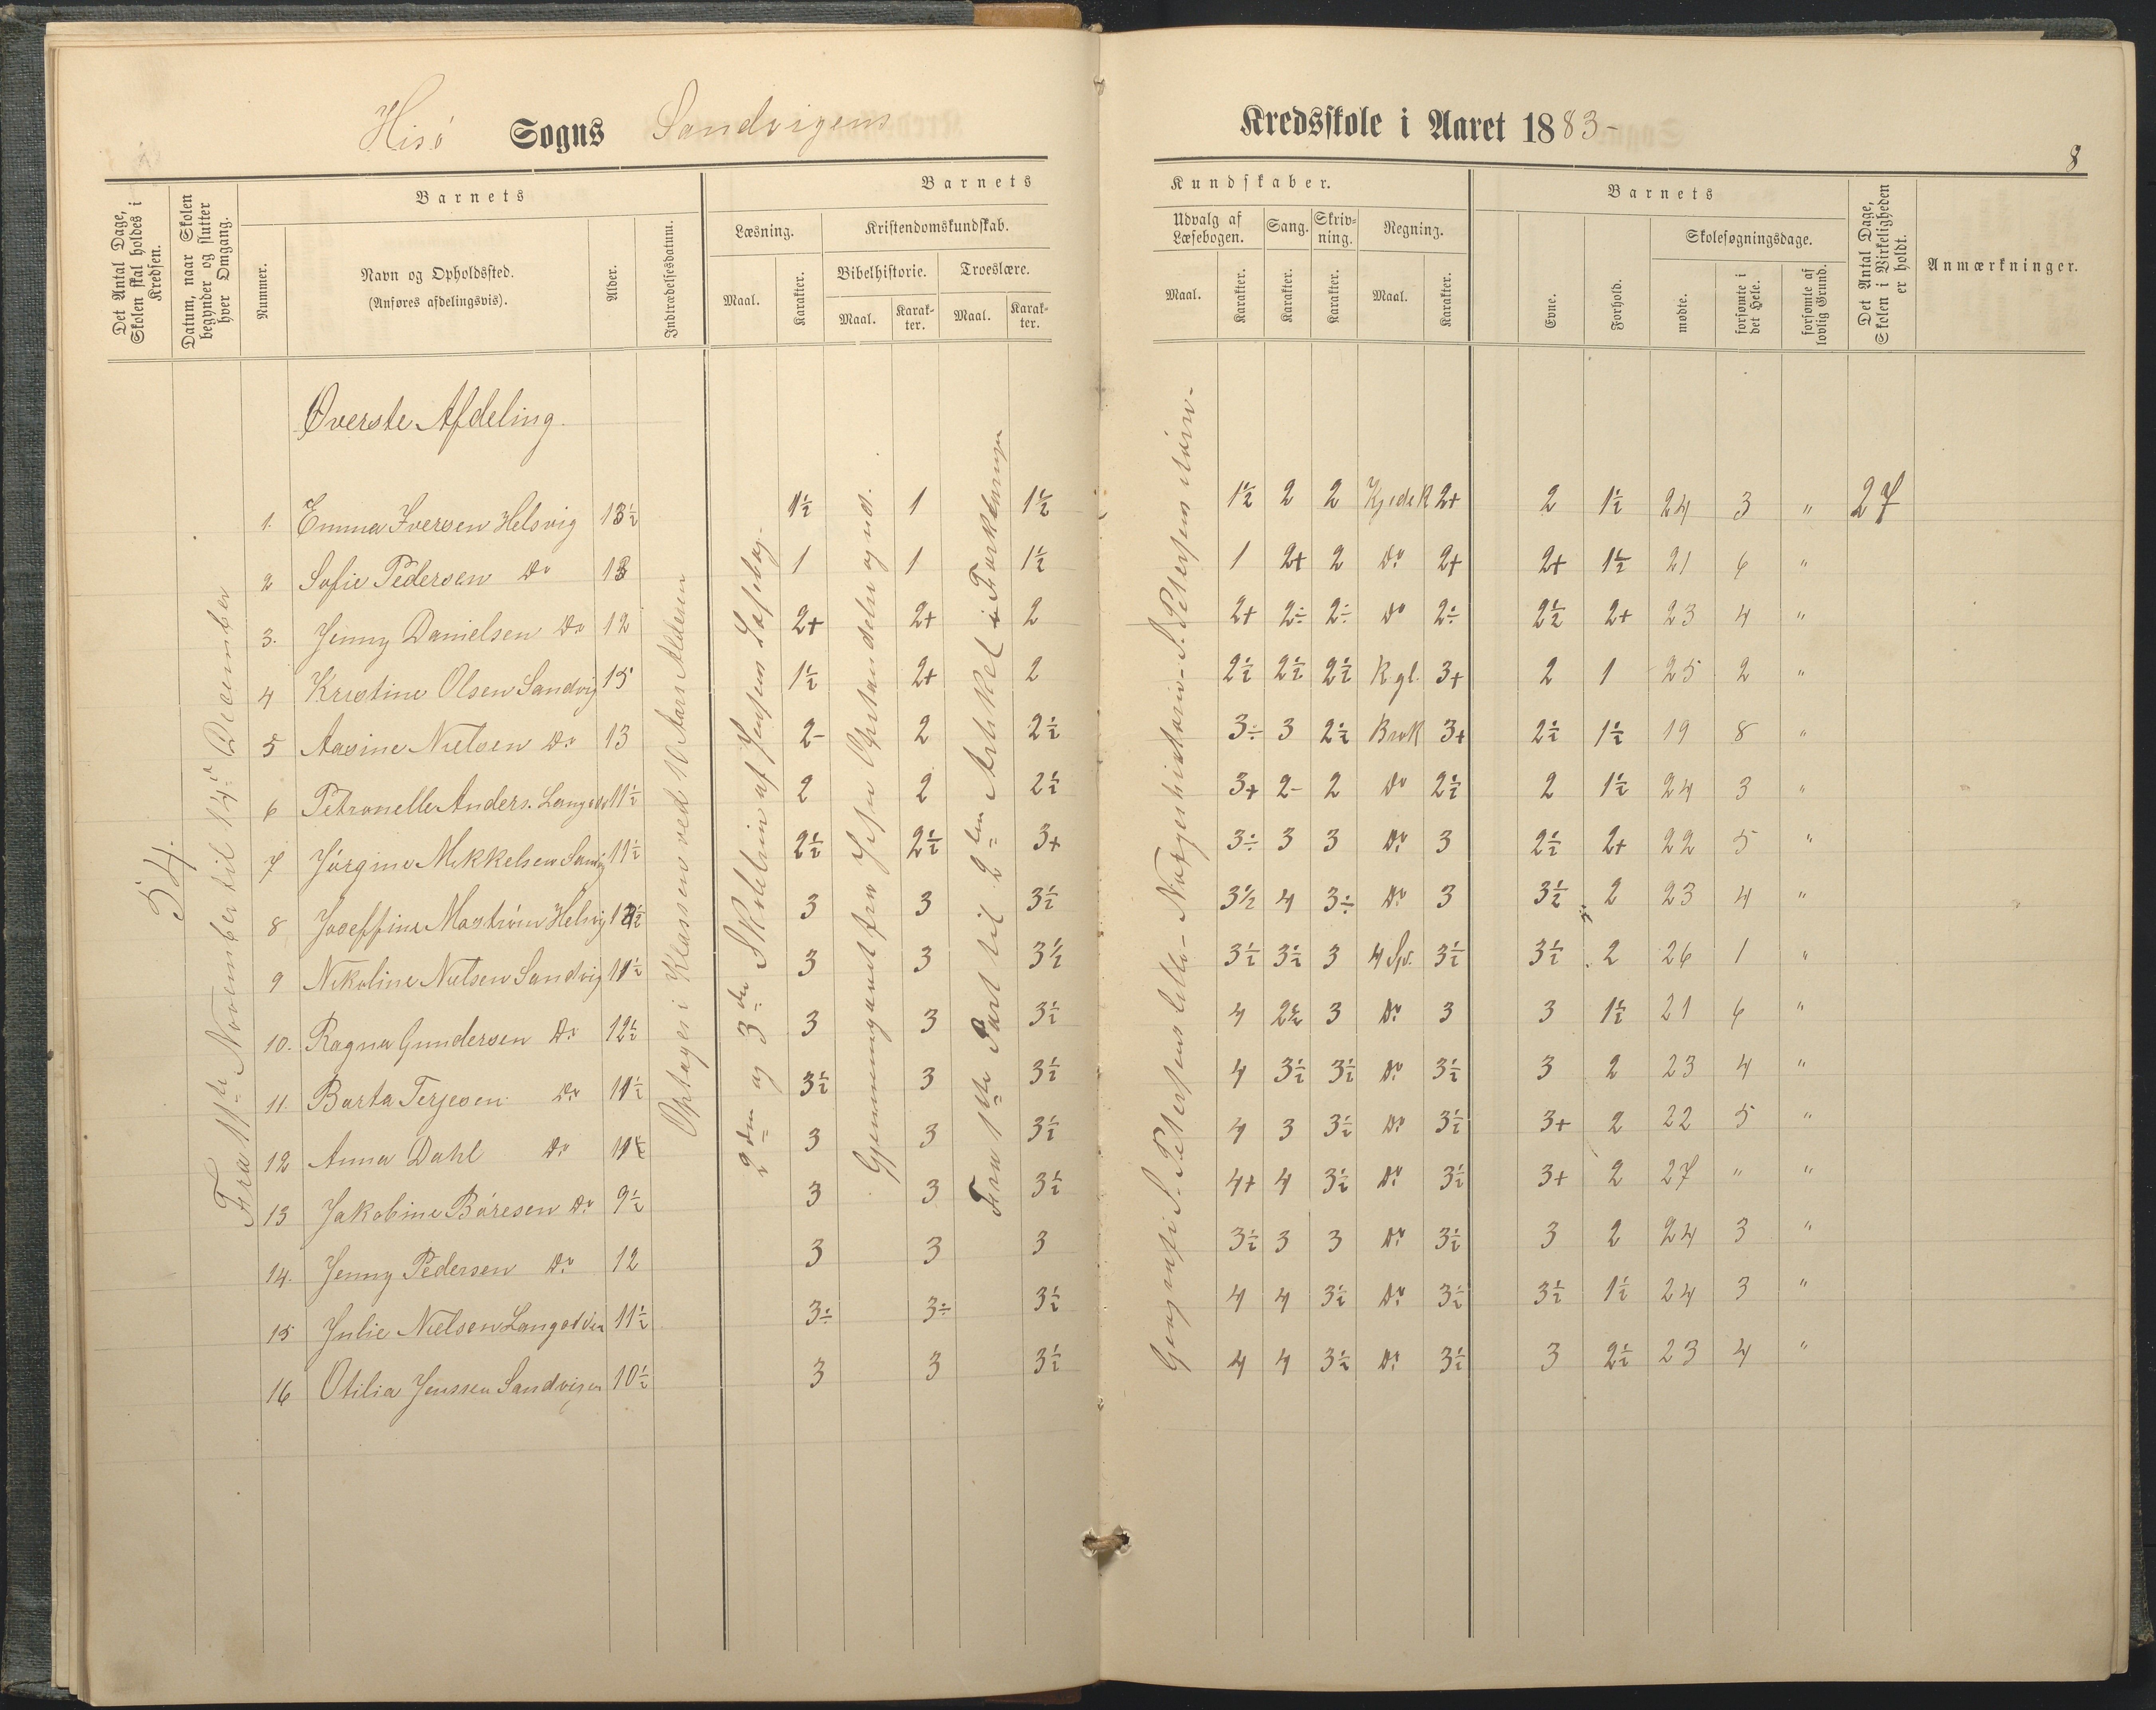 Hisö Sogns Sandvigens Kredsskole i Aaret 1883-
8
Det Antal Dage, Skolen skal holdes i Kredsen.
Datum, naar Skolen begynder og slutter hver Omgang.
Barnets
Nummer.
Navn og Opholdssted.
(Anføres afdelingsvis).
Alder.
Indtrædelsesdatum.
Barnets Kundskaber.
Læsning.
Maal. Karakter.
Kristendomskundskab.
Bibelhistorie. Troeslære.
Maal. Karakter. Maal. Karakter.
Udvalg af Læsebogen. Sang. Skrivning. Regning.
Maal. Karakter. Karakter. Karakter. Maal. Karakter.
Barnets
Evne. Forhold.
Skolesøgningsdage.
mødte. forsømte i det Hele. forsømte af lovlig Grund.
Det Antal Dage, Skolen i Virkeligheden er holdt.
Anmærkninger.
54.
Fra 11te November til 14de December
Øverste Afdeling.
Optages i Klassen ved 10 Aars Alderen
2den og 3die Skoletrin af Jensens Læsebog.
Gjennemgaaet fra Jesu Opstandelse og ud.
Fra 1ste Part til 2den Artikel i Forklaringen
Geografi S. Petersens lille - Norgeshistorie - S. Petersens större -
1. Emma Iversen Helsvig 13½ 1½ 1 1½ 1½ 2 2 Kjedr 2+ 2 1½ 24 3 " 27
2 Sofie Pedersen Do 13 1 1 1½ 1 2+ 2 Do 2+ 2+ 1½ 21 6 "
3. Jenny Danielsen Do 12 2+ 2+ 2 2+ 2÷ 2÷ Do 2÷ 2½ 2+ 23 4 "
4 Kristine Olsen Sandvig 15 1½ 2+ 2 2½ 2½ 2½ R.gl. 3+ 2 1 25 2 "
5 Aasine Nielsen Do 13 2- 2 2½ 3÷ 3 2½ Brok 3+ 2½ 1½ 19 8 "
6 Petronelle Anders. Langedv 11½ 2 2 2½ 3+ 2- 2 Do 2½ 2 1½ 24 3 "
7 Jörgine Mikkelsen Sandvig 11½ 2½ 2½ 3+ 3÷ 3 3 Do 3 2½ 2+ 22 5 "
8 Joseffine Maström Helsvig 12½ 3 3 3½ 3½ 4 3÷ Do 3 3½ 2 23 4 "
9 Nikoline Nielsen Sandvig 11½ 3 3 3½ 3½ 3½ 3 4 Sp. 3½ 3½ 2 26 1 "
10. Ragna Gundersen Do 12½ 3 3 3½ 4 2½ 3 Do 3 3 1½ 21 6 "
11. Barta Terjesen Do 11½ 3½ 3 3½ 4 3½ 3½ Do 3½ 3 2 23 4 "
12 Anna Dahl Do 11½ 3 3 3½ 4 3 3½ Do 3½ 3+ 2 22 5 "
13 Jakobine Böresen Do 9½ 3 3 3½ 4+ 4 3½ Do 3½ 3+ 2 27 " "
14. Jenny Pedersen Do 12 3 3 3 3½ 3 3 Do 3½ 3 2 24 3 "
15 Julie Nielsen Langedvei 11½ 3÷ 3÷ 3½ 4 4 3½ Do 3½ 3½ 1½ 24 3 "
16 Otilia Jenssen Sandvigen 10½ 3 3 3½ 4 4 3½ Do 3½ 3 2½ 23 4 "